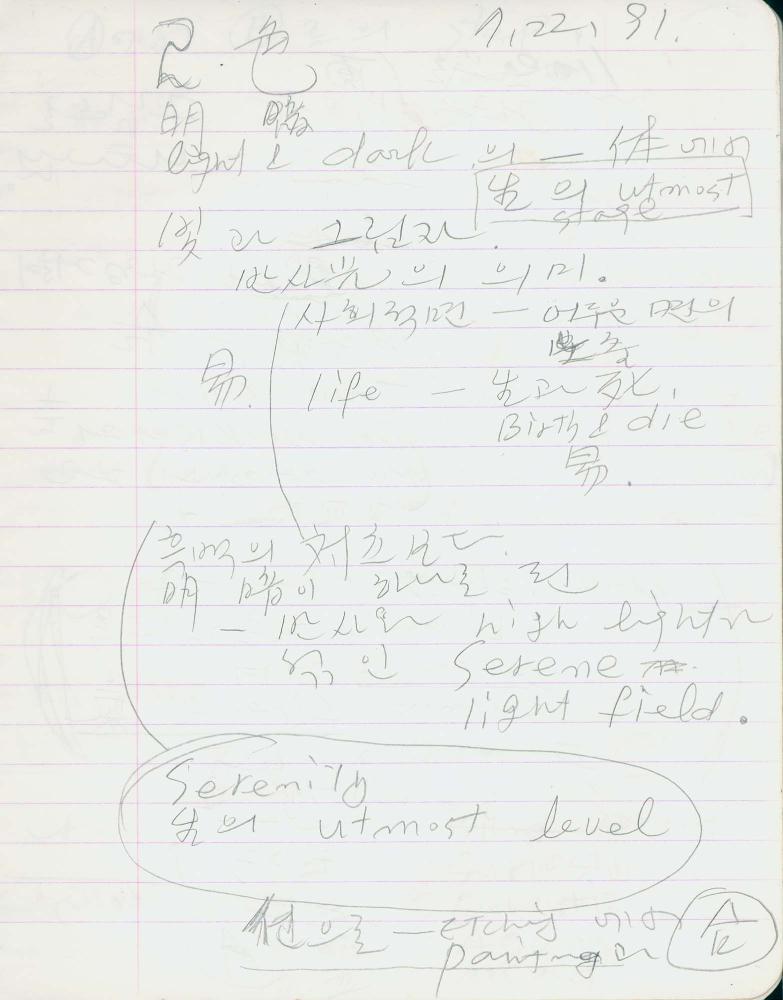 1, 22, 91.
色
明 暗
light & dark 의 — 体에서
生의 utmost
stage
빛과 그림자.
반사光의 의미.
사회적면 — 어두운 면의
易. life — 生과 死,
Birth & die
易.
흑백의 보다
明 暗이 하나로 된
— 반사와 high light가
섞인 Serene
light field.
Serenity
生의 utmost level
선으로 — etching에서
painting과 合